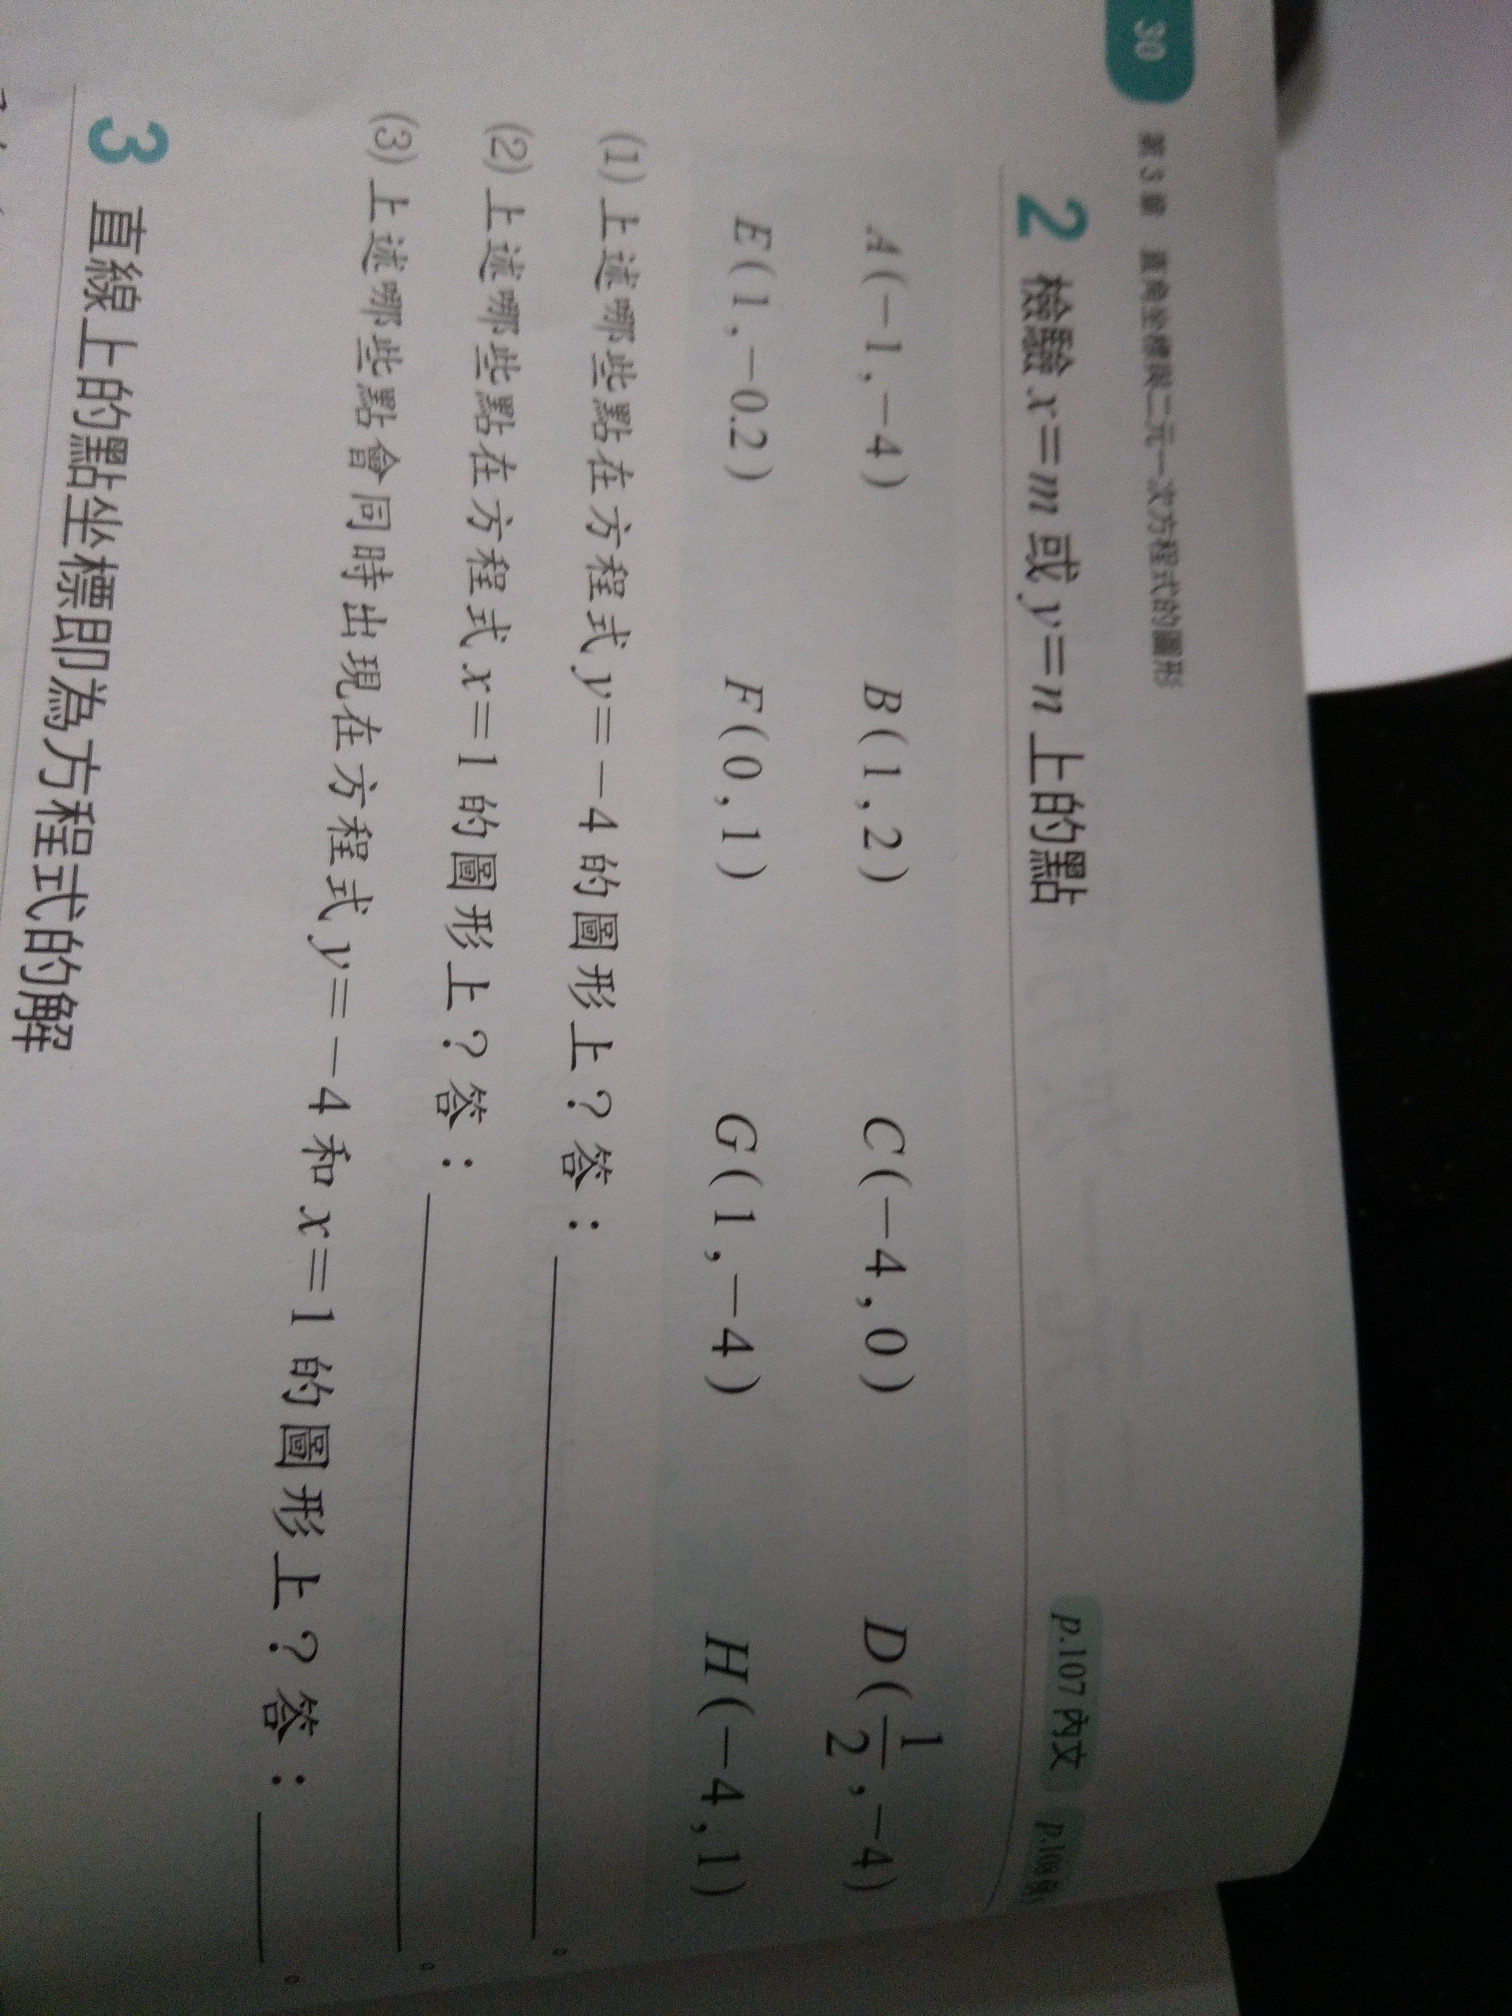 30
第3章 直角坐標與二元一次方程式的圖形
2 檢驗 x=m 或 y=n 上的點
p.107 內文
A(-1,-4) B(1,2) C(-4,0) D(1/2,-4)
E(1,-0.2) F(0,1) G(1,-4) H(-4,1)
(1) 上述哪些點在方程式 y=-4 的圖形上?答:________。
(2) 上述哪些點在方程式 x=1 的圖形上?答:________。
(3) 上述哪些點會同時出現在方程式 y=-4 和 x=1 的圖形上?答:____。
3 直線上的點坐標即為方程式的解